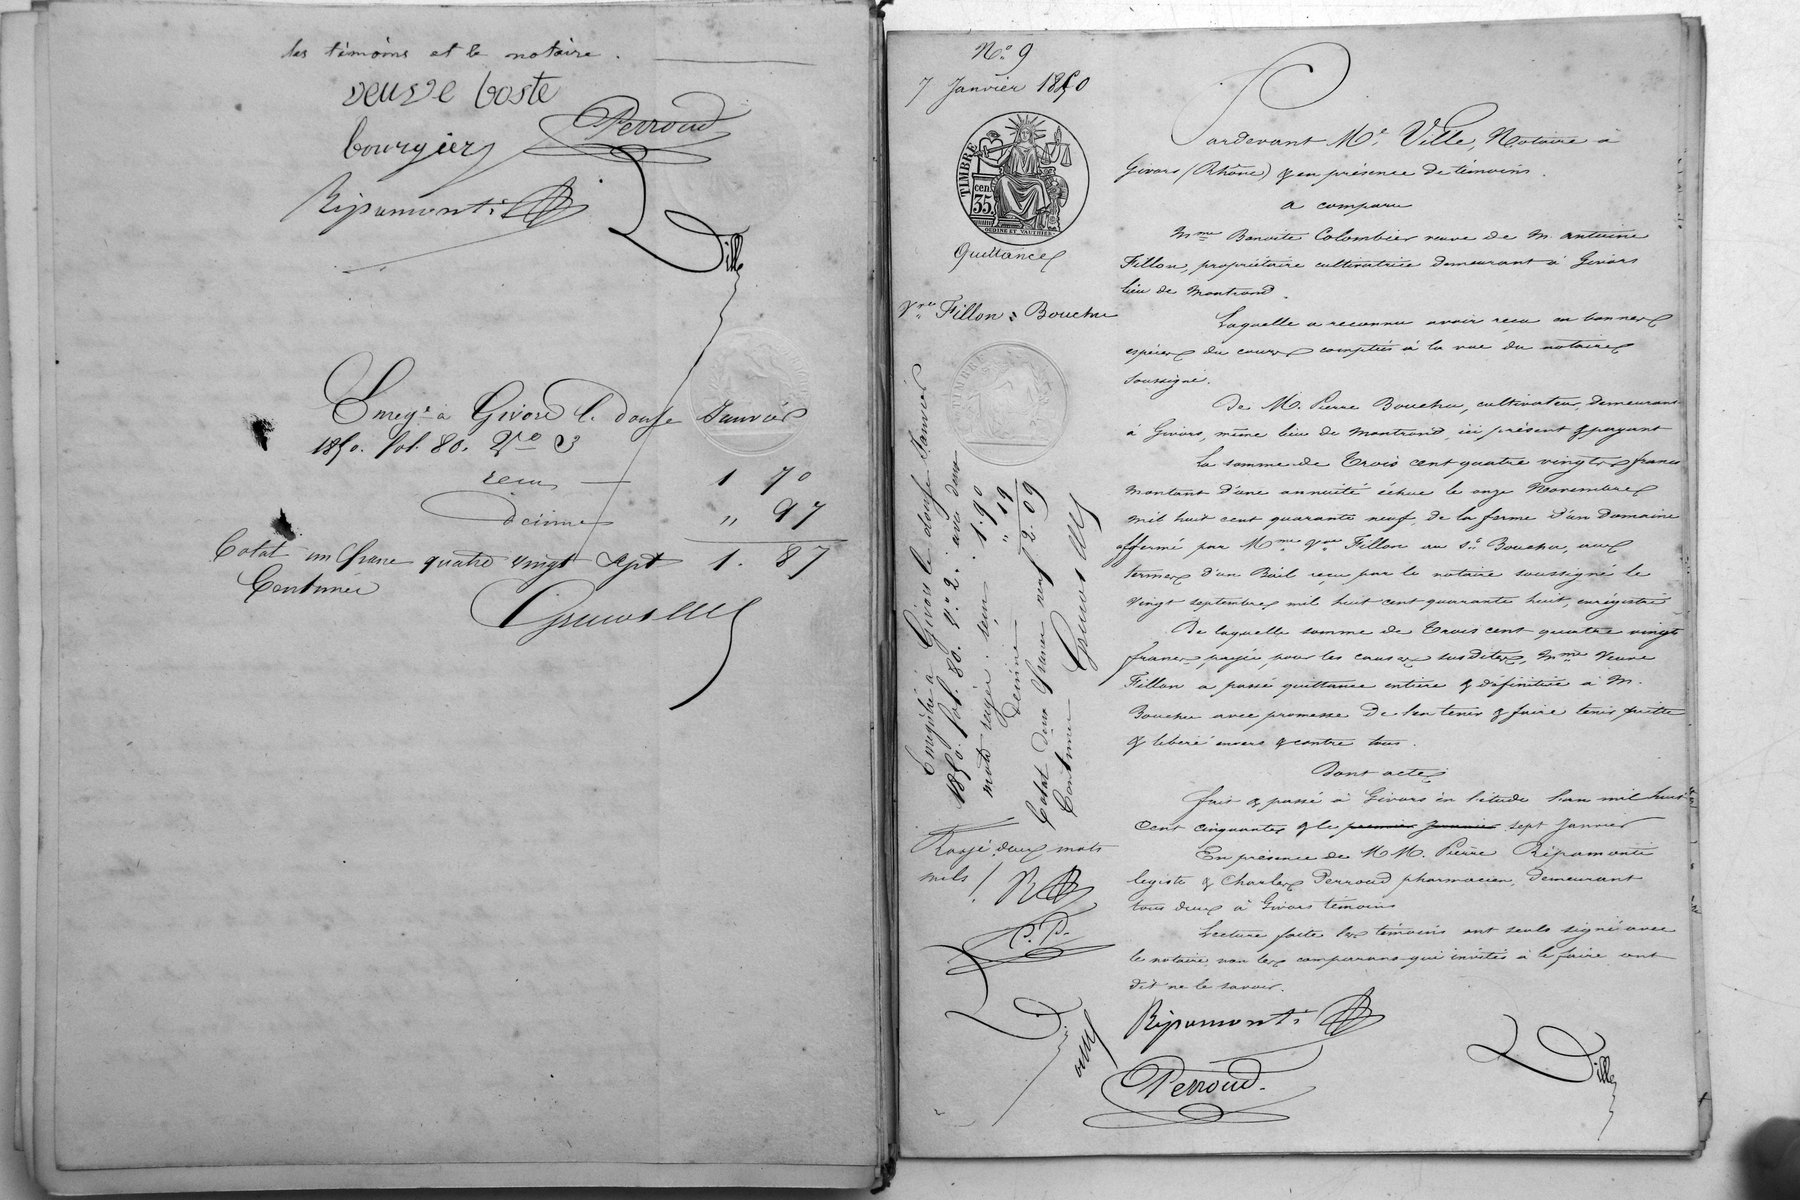 les témoins et le notaire.
veuve boste
bourgier Perroud
Ripamonti
Ville
Enregé à Givors le douze Janvier
1850. fol. 80. Vo C 3
reçu 1 70
décime " 97
Total un franc quatre vingt sept 1. 87
Centimes
No 9
7 Janvier 1850
TIMBRE
35 cen.
OUDINE ET VAUTHIER
Quittance
Vve Fillon = Bouchu
Enregistré à Givors le douze Janvier
1850. fol. 80. Vo C 2. avec deux
mots rayés. reçu 1.90
décime " 19
Total deux francs neuf 2.09
Centimes
Rayé deux mots
nuls
C. P.
Ville
Pardevant Me Ville, Notaire à
Givors (Rhône) & en présence de témoins.
a comparu
Mme Benoite Colombier veuve de M. antoine
Fillon, propriétaire cultivatrice demeurant à Givors
lieu de Montrond.
Laquelle a reconnu avoir reçu en bonnes
espèces du cours comptées à la vue du notaire
soussigné.
De M. Pierre Bouchu, cultivateur, demeurant
à Givors, même lieu de Montrond, ici présent & payant
la somme de Trois cent quatre vingts francs
montant d'une annuité échue le onze Novembre
mil huit cent quarante neuf, de la ferme d'un domaine
affermé par Mme Vve Fillon au Sr Bouchu, aux
termes d'un Bail reçu par le notaire soussigné le
vingt septembre mil huit cent quarante huit, enrégistré
De laquelle somme de Trois cent quatre vingt
francs, payée pour les causes susdites, Mme Veuve
Fillon a passé quittance entière & définitive à M.
Bouchu avec promesse de l'en tenir & faire tenir quitte
& libéré envers & contre tous.
Dont acte,
fait & passé à Givors en l'étude l'an mil huit
cent cinquante, & le premier Janvier sept Janvier
En présence de MM. Pierre Ripamonti
légiste & Charles Perroud pharmacien, demeurant
tous deux à Givors témoins
Lecture faite les témoins ont seuls signé avec
le notaire non les comparans qui invités à le faire ont
dit ne le savoir.
Ripamonti
Perroud.
Ville